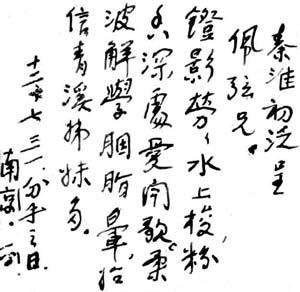 秦淮初泛呈
佩弦兄。
鐙影勞〻水上梭,粉
香深處愛聞歌。柔
波解學胭脂暈,始
信青溪姊妹多。
十二、七、三一、分手之日
南京